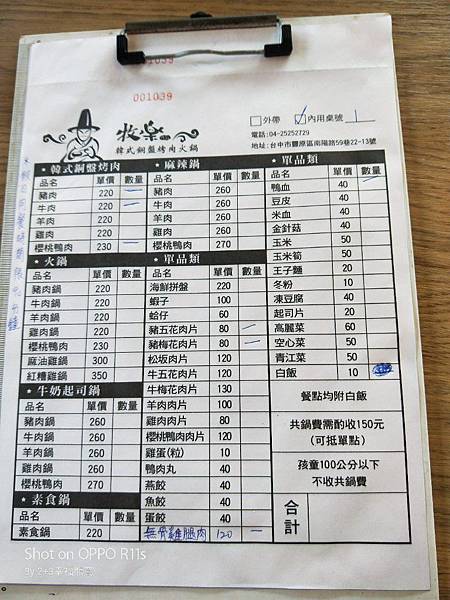 001039
001039
牧樂
韓式銅盤烤肉火鍋
□外帶 ☑內用桌號 1
電話:04-25252729
地址:台中市豐原區南陽路59巷22-13號
・韓式銅盤烤肉
品名 單價 數量
豬肉 220 一
牛肉 220 一
羊肉 220
雞肉 220
櫻桃鴨肉 230 一
・火鍋
品名 單價 數量
豬肉鍋 220
牛肉鍋 220
羊肉鍋 220
雞肉鍋 220
櫻桃鴨肉 230
麻油雞鍋 300
紅糟雞鍋 350
・牛奶起司鍋
品名 單價 數量
豬肉鍋 260
牛肉鍋 260
羊肉鍋 260
雞肉鍋 260
櫻桃鴨肉 270
・素食鍋
品名 單價 數量
素食鍋 220
・麻辣鍋
品名 單價 數量
豬肉 260
牛肉 260
羊肉 260
雞肉 260
櫻桃鴨肉 270
・單品類
品名 單價 數量
海鮮拼盤 220
蝦子 100
蛤仔 60
豬五花肉片 80 一
豬梅花肉片 80 一
松坂肉片 120
牛五花肉片 120
牛梅花肉片 130
羊肉肉片 100
雞肉肉片 80
櫻桃鴨肉肉片 120
雞蛋(粒) 10
鴨肉丸 40
燕餃 40
魚餃 40
蛋餃 40
無骨雞腿肉 120 一
・單品類
品名 單價 數量
鴨血 40 一
豆皮 40
米血 40
金針菇 40
玉米 50
玉米筍 50
王子麵 20
冬粉 10
凍豆腐 40
起司片 20
高麗菜 60
空心菜 50
青江菜 50
白飯 10
餐點均附白飯
共鍋費需酌收150元
(可抵單點)
孩童100公分以下
不收共鍋費
合計
Shot on OPPO R11s